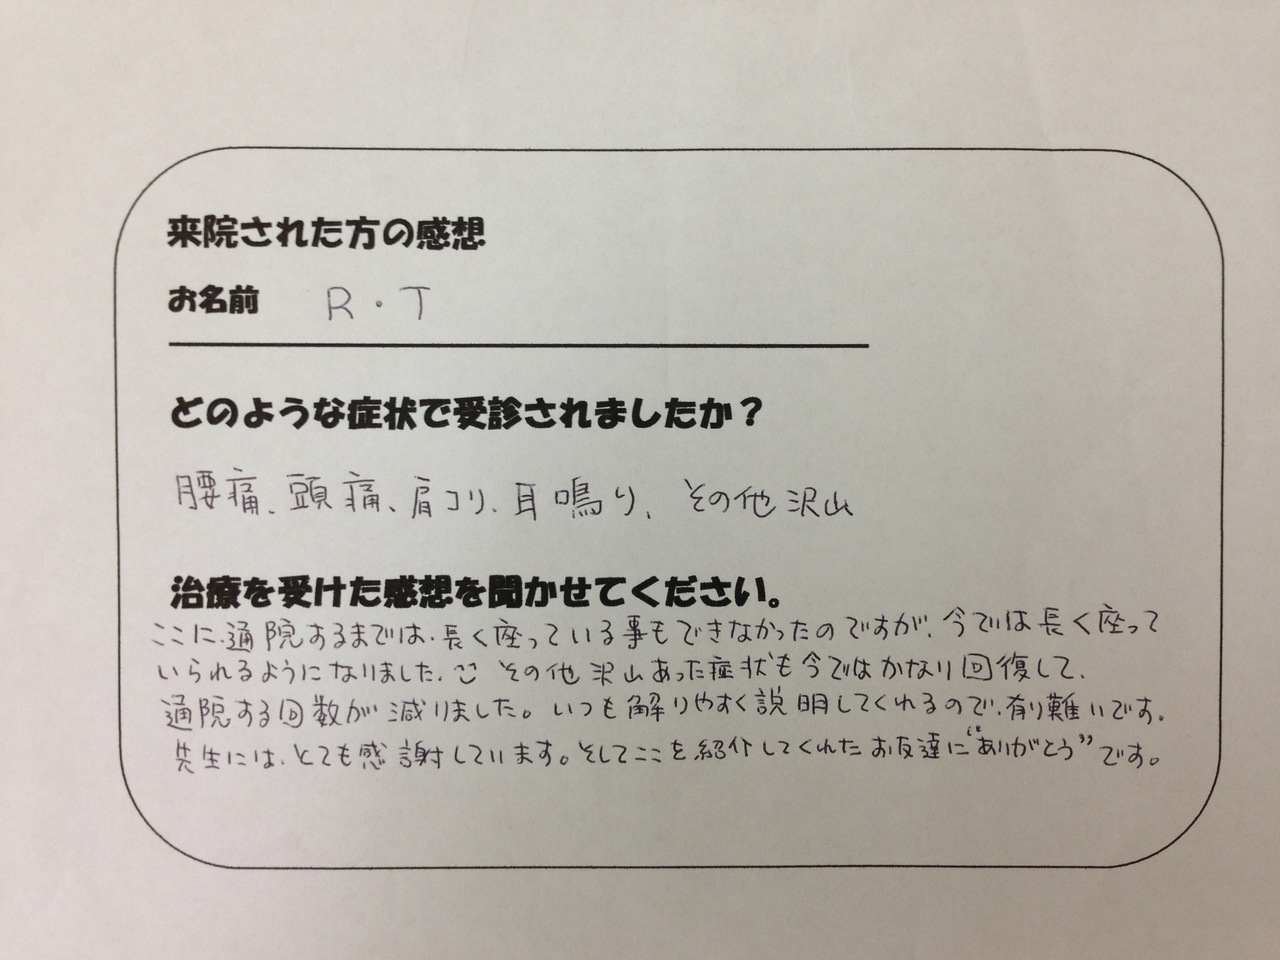 来院された方の感想
お名前 R・T
どのような症状で受診されましたか？
腰痛、頭痛、肩コリ、耳鳴り、その他沢山
治療を受けた感想を聞かせてください。
ここに、通院するまでは、長く座っている事もできなかったのですが、今では長く座って
いられるようになりました。その他沢山あった症状も今ではかなり回復して、
通院する回数が減りました。いつも解りやすく説明してくれるので、有り難いです。
先生には、とても感謝しています。そしてここを紹介してくれたお友達に“ありがとう”です。